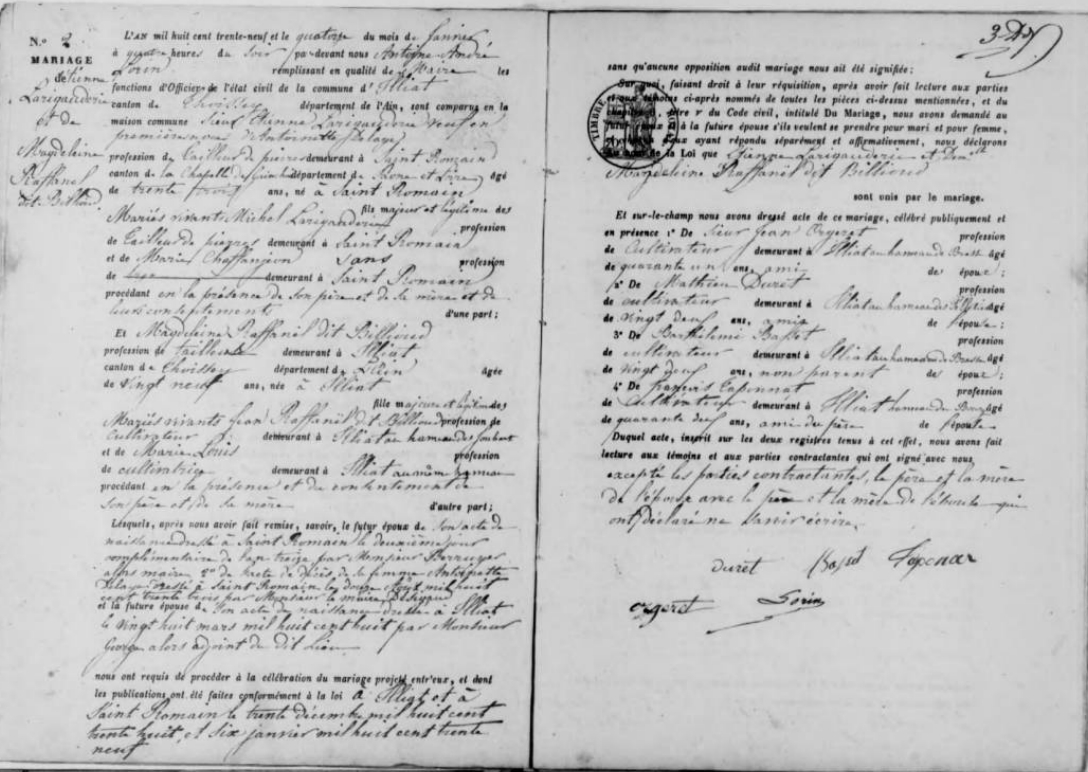 N.º 2
MARIAGE
d'Etienne
Larigauderie
et de
Magdeleine
Raffanel
dit Billioud
L'AN mil huit cent trente-neuf et le quatorze du mois de Janvier
à quatre heures du Soir par-devant nous Antoine André
Sorin remplissant en qualité de Maire les
fonctions d'Officier de l'état civil de la commune d'Illiat
canton de Thoissey département de l'Ain, sont comparus en la
maison commune Sieur Etienne Larigauderie veuf en
premières noces d'Antoinette Delaye
profession de tailleur de pierres demeurant à Saint Romain
canton de la Chapelle de Guinchay département de Saône et Loire âgé
de trente trois ans, né à Saint Romain
fils majeur et légitime des
Mariés vivants Michel Larigauderie profession
de tailleur de pierres demeurant à Saint Romain
et de Marie Chaffanjon Sans profession
de demeurant à Saint Romain
procédant en la présence de son père et de sa mère et de
leurs consentements d'une part;
Et Magdeleine Raffanel dit Billioud
profession de tailleuse demeurant à Illiat
canton de Thoissey département de l'Ain âgée
de vingt neuf ans, née à Illiat
fille majeure et légitime des
Mariés vivants Jean Raffanel dit Billioud profession de
Cultivateur demeurant à Illiat au hameau des
et de Marie Louis profession
de cultivatrice demeurant à Illiat au même hameau
procédant en la présence et du consentement de
son père et de sa mère d'autre part;
Lesquels, après nous avoir fait remise, savoir, le futur époux de son acte de
naissance dressé à Saint Romain le deuxième jour
complémentaire de l'an treize par Monsieur
alors maire, 2º de l'acte de décès de sa femme Antoinette
Delaye dressé à Saint Romain le douze Août mil huit
cent trente trois par Monsieur le maire
et la future épouse de son acte de naissance dressé à Illiat
le vingt huit mars mil huit cent huit par Monsieur
George alors adjoint du dit Lieu
nous ont requis de procéder à la célébration du mariage projeté entr'eux, et dont
les publications ont été faites conformément à la loi à Illiat et à
Saint Romain le trente décembre mil huit cent
trente huit, et six janvier mil huit cent trente
neuf
sans qu'aucune opposition audit mariage nous ait été signifiée;
Sur quoi, faisant droit à leur réquisition, après avoir fait lecture aux parties
et aux témoins ci-après nommés de toutes les pièces ci-dessus mentionnées, et du
chapitre du Code civil, intitulé Du Mariage, nous avons demandé au
futur époux et à la future épouse s'ils veulent se prendre pour mari et pour femme,
ayant répondu séparément et affirmativement, nous déclarons
au nom de la Loi que Etienne Larigauderie et
Magdeleine Raffanel dit Billioud
sont unis par le mariage.
Et sur-le-champ nous avons dressé acte de ce mariage, célébré publiquement et
en présence : 1º De Sieur Jean Orgeret profession
de Cultivateur demeurant à Illiat au hameau de âgé
de quarante un ans, ami de époux;
2º De Mathieu Duret profession
de cultivateur demeurant à Illiat au hameau des âgé
de vingt deux ans, ami de l'épouse;
3º De Barthélemi Basset profession
de cultivateur demeurant à Illiat au hameau de âgé
de vingt deux ans, non parent des époux;
4º De François Taponnat profession
de Cultivateur demeurant à Illiat hameau du âgé
de quarante deux ans, ami du père de l'épouse
Duquel acte, inscrit sur les deux registres tenus à cet effet, nous avons fait
lecture aux témoins et aux parties contractantes qui ont signé avec nous
excepté les parties contractantes, le père et la mère
de l'épouse avec le père et la mère de qui
ont déclaré ne savoir écrire.
Duret Basset Taponat
orgeret Sorin
TIMBRE